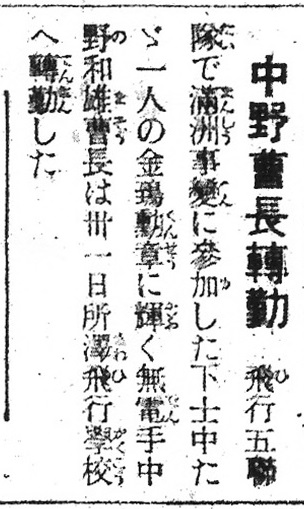 中野曹長轉勤 飛行五聯
隊で滿洲事變に參加した下士中た
ゞ一人の金鵄勳章に輝く無電手中
野和雄曹長は卅一日所澤飛行學校
へ轉勤した